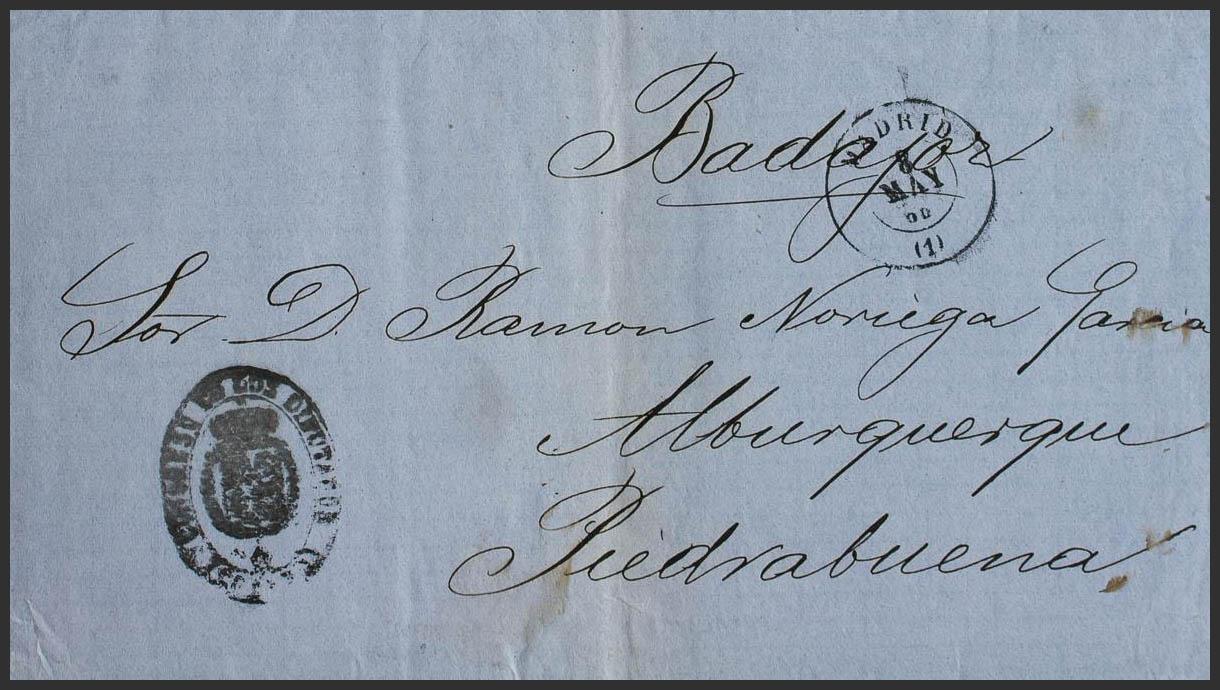 Badajoz
MADRID
8
MAY
(1)
Sor D. Ramon Noriega Garcia
Alburquerque
Piedrabuena